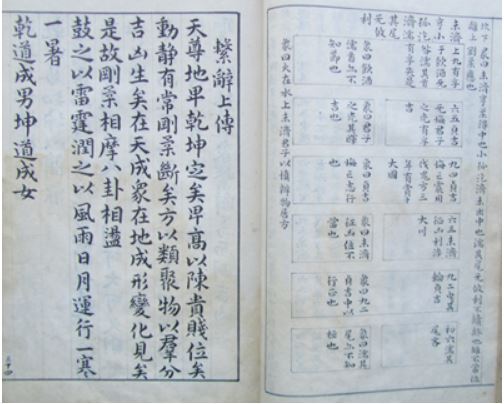 坎下
離上
剛柔應也
彖曰未濟亨柔得中也小狐汔濟未出中也濡其尾无攸利不續終也雖不當位
未濟
亨小
狐汔
濟濡
其尾
无攸
利
上九有孚
于飲酒无
咎濡其首
有孚失是
象曰飲酒
濡首亦不
知節也
六五貞吉
无悔君子
之光有孚
吉
象曰君子
之光其暉
吉也
九四貞吉
悔亡震用
伐鬼方三
年有賞于
大國
象曰貞吉
悔亡志行
也
六三未濟
征凶利涉
大川
象曰未濟
征凶位不
當也
九二曳其
輪貞吉
象曰九二
貞吉中以
行正也
初六濡其
尾吝
象曰濡其
尾亦不知
極也
象曰火在水上未濟君子以慎辨物居方
繫辭上傳
天尊地卑乾坤定矣卑高以陳貴賤位矣
動靜有常剛柔斷矣方以類聚物以羣分
吉凶生矣在天成象在地成形變化見矣
是故剛柔相摩八卦相盪
鼓之以雷霆潤之以風雨日月運行一寒
一暑
乾道成男坤道成女